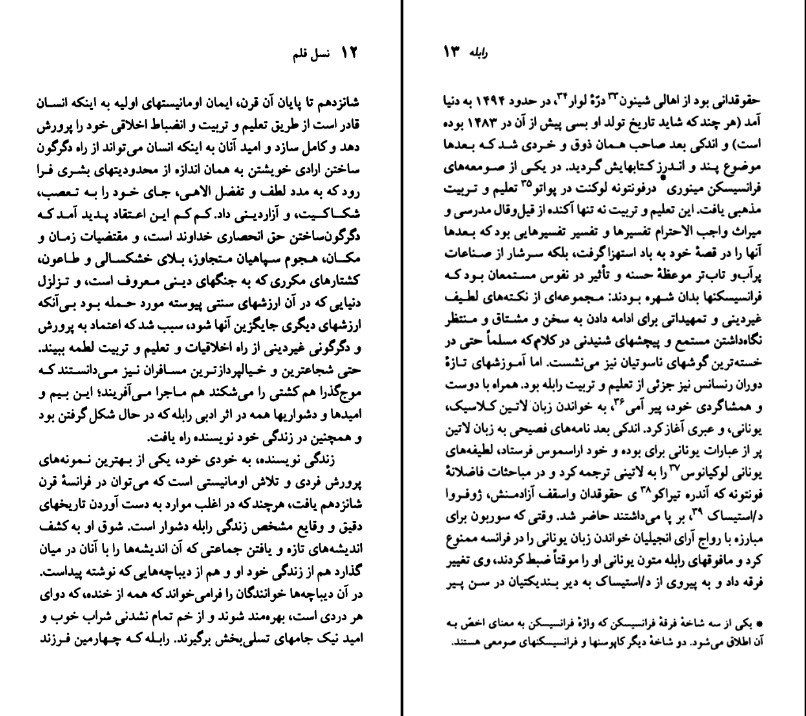 ۱۲ نسل قلم
شانزدهم تا پایان آن قرن، ایمان اومانیستهای اولیه به اینکه انسان
قادر است از طریق تعلیم و تربیت و انضباط اخلاقی خود را پرورش
دهد و کامل سازد و امید آنان به اینکه انسان می‌تواند از راه دگرگون
ساختن ارادی خویشتن به همان اندازه از محدودیتهای بشری فرا
رود که به مدد لطف و تفضل الاهی، جای خود را به تعصب،
شکاکیت، و آزاردینی داد. کم کم این اعتقاد پدید آمد که
دگرگون‌ساختن حق انحصاری خداوند است، و مقتضیات زمان و
مکان، هجوم سپاهیان متجاوز، بلای خشکسالی و طاعون،
کشتارهای مکرری که به جنگهای دینی معروف است، و تزلزل
دنیایی که در آن ارزشهای سنتی پیوسته مورد حمله بود بی‌آنکه
ارزشهای دیگری جایگزین آنها شود، سبب شد که اعتماد به پرورش
و دگرگونی غیردینی از راه اخلاقیات و تعلیم و تربیت لطمه ببیند.
حتی شجاعترین و خیالپردازترین مسافران نیز می‌دانستند که
موج‌گذرا هم کشتی را می‌شکند هم ماجرا می‌آفریند؛ این بیم و
امیدها و دشواریها همه در اثر ادبی رابله که در حال شکل گرفتن بود
و همچنین در زندگی خود نویسنده راه یافت.
زندگی نویسنده، به خودی خود، یکی از بهترین نمونه‌های
پرورش فردی و تلاش اومانیستی است که می‌توان در فرانسهٔ قرن
شانزدهم یافت، هرچند که در اغلب موارد به دست آوردن تاریخهای
دقیق و وقایع مشخص زندگی رابله دشوار است. شوق او به کشف
اندیشه‌های تازه و یافتن جماعتی که آن اندیشه‌ها را با آنان در میان
گذارد هم از زندگی خود او و هم از دیباچه‌هایی که نوشته پیداست.
در آن دیباچه‌ها خوانندگان را فرامی‌خواند که همه از خنده، که دوای
هر دردی است، بهره‌مند شوند و از خم تمام نشدنی شراب خوب و
امید نیک جامهای تسلی‌بخش برگیرند. رابله که چهارمین فرزند
رابله ۱۳
حقوقدانی بود از اهالی شینون۳۳ درّهٔ لوار۳۴، در حدود ۱۴۹۴ به دنیا
آمد (هر چند که شاید تاریخ تولد او بسی پیش از آن در ۱۴۸۳ بوده
است) و اندکی بعد صاحب همان ذوق و خردی شد که بعدها
موضوع پند و اندرز کتابهایش گردید. در یکی از صومعه‌های
فرانسیسکن مینوری* درفونتونه لوکنت در پواتو۳۵ تعلیم و تربیت
مذهبی یافت. این تعلیم و تربیت نه تنها آکنده از قیل‌وقال مدرسی و
میراث واجب الاحترام تفسیرها و تفسیر تفسیرهایی بود که بعدها
آنها را در قصهٔ خود به باد استهزا گرفت، بلکه سرشار از صناعات
پرآب‌و تاب‌تر موعظهٔ حسنه و تأثیر در نفوس مستمعان بود که
فرانسیسکنها بدان شهره بودند: مجموعه‌ای از نکته‌های لطیف
غیردینی و تمهیداتی برای ادامه دادن به سخن و مشتاق و منتظر
نگاه‌داشتن مستمع و پیچشهای شنیدنی در کلام‌که مسلماً حتی در
خسته‌ترین گوشهای ناسوتیان نیز می‌نشست. اما آموزشهای تازهٔ
دوران رنسانس نیز جزئی از تعلیم و تربیت رابله بود. همراه با دوست
و همشاگردی خود، پیر آمی۳۶، به خواندن زبان لاتین کلاسیک،
یونانی، و عبری آغاز کرد. اندکی بعد نامه‌های فصیحی به زبان لاتین
پر از عبارات یونانی برای بوده و خود اراسموس فرستاد، لطیفه‌های
یونانی لوکیانوس۳۷ را به لاتینی ترجمه کرد و در مباحثات فاضلانهٔ
فونتونه که آندره تیراکو۳۸ ی حقوقدان واسقف آزادمنش، ژوفروا
د/استیساک ۳۹، بر پا می‌داشتند حاضر شد. وقتی که سوربون برای
مبارزه با رواج آرای انجیلیان خواندن زبان یونانی را در فرانسه ممنوع
کرد و مافوقهای رابله متون یونانی او را موقتاً ضبط‌کردند، وی تغییر
فرقه داد و به پیروی از د/استیساک به دیر بندیکتیان در سن پیر
* یکی از سه شاخهٔ فرقهٔ فرانسیسکن که واژهٔ فرانسیسکن به معنای اخصّ به
آن اطلاق می‌شود. دو شاخهٔ دیگر کاپوسنها و فرانسیسکنهای صومعی هستند.